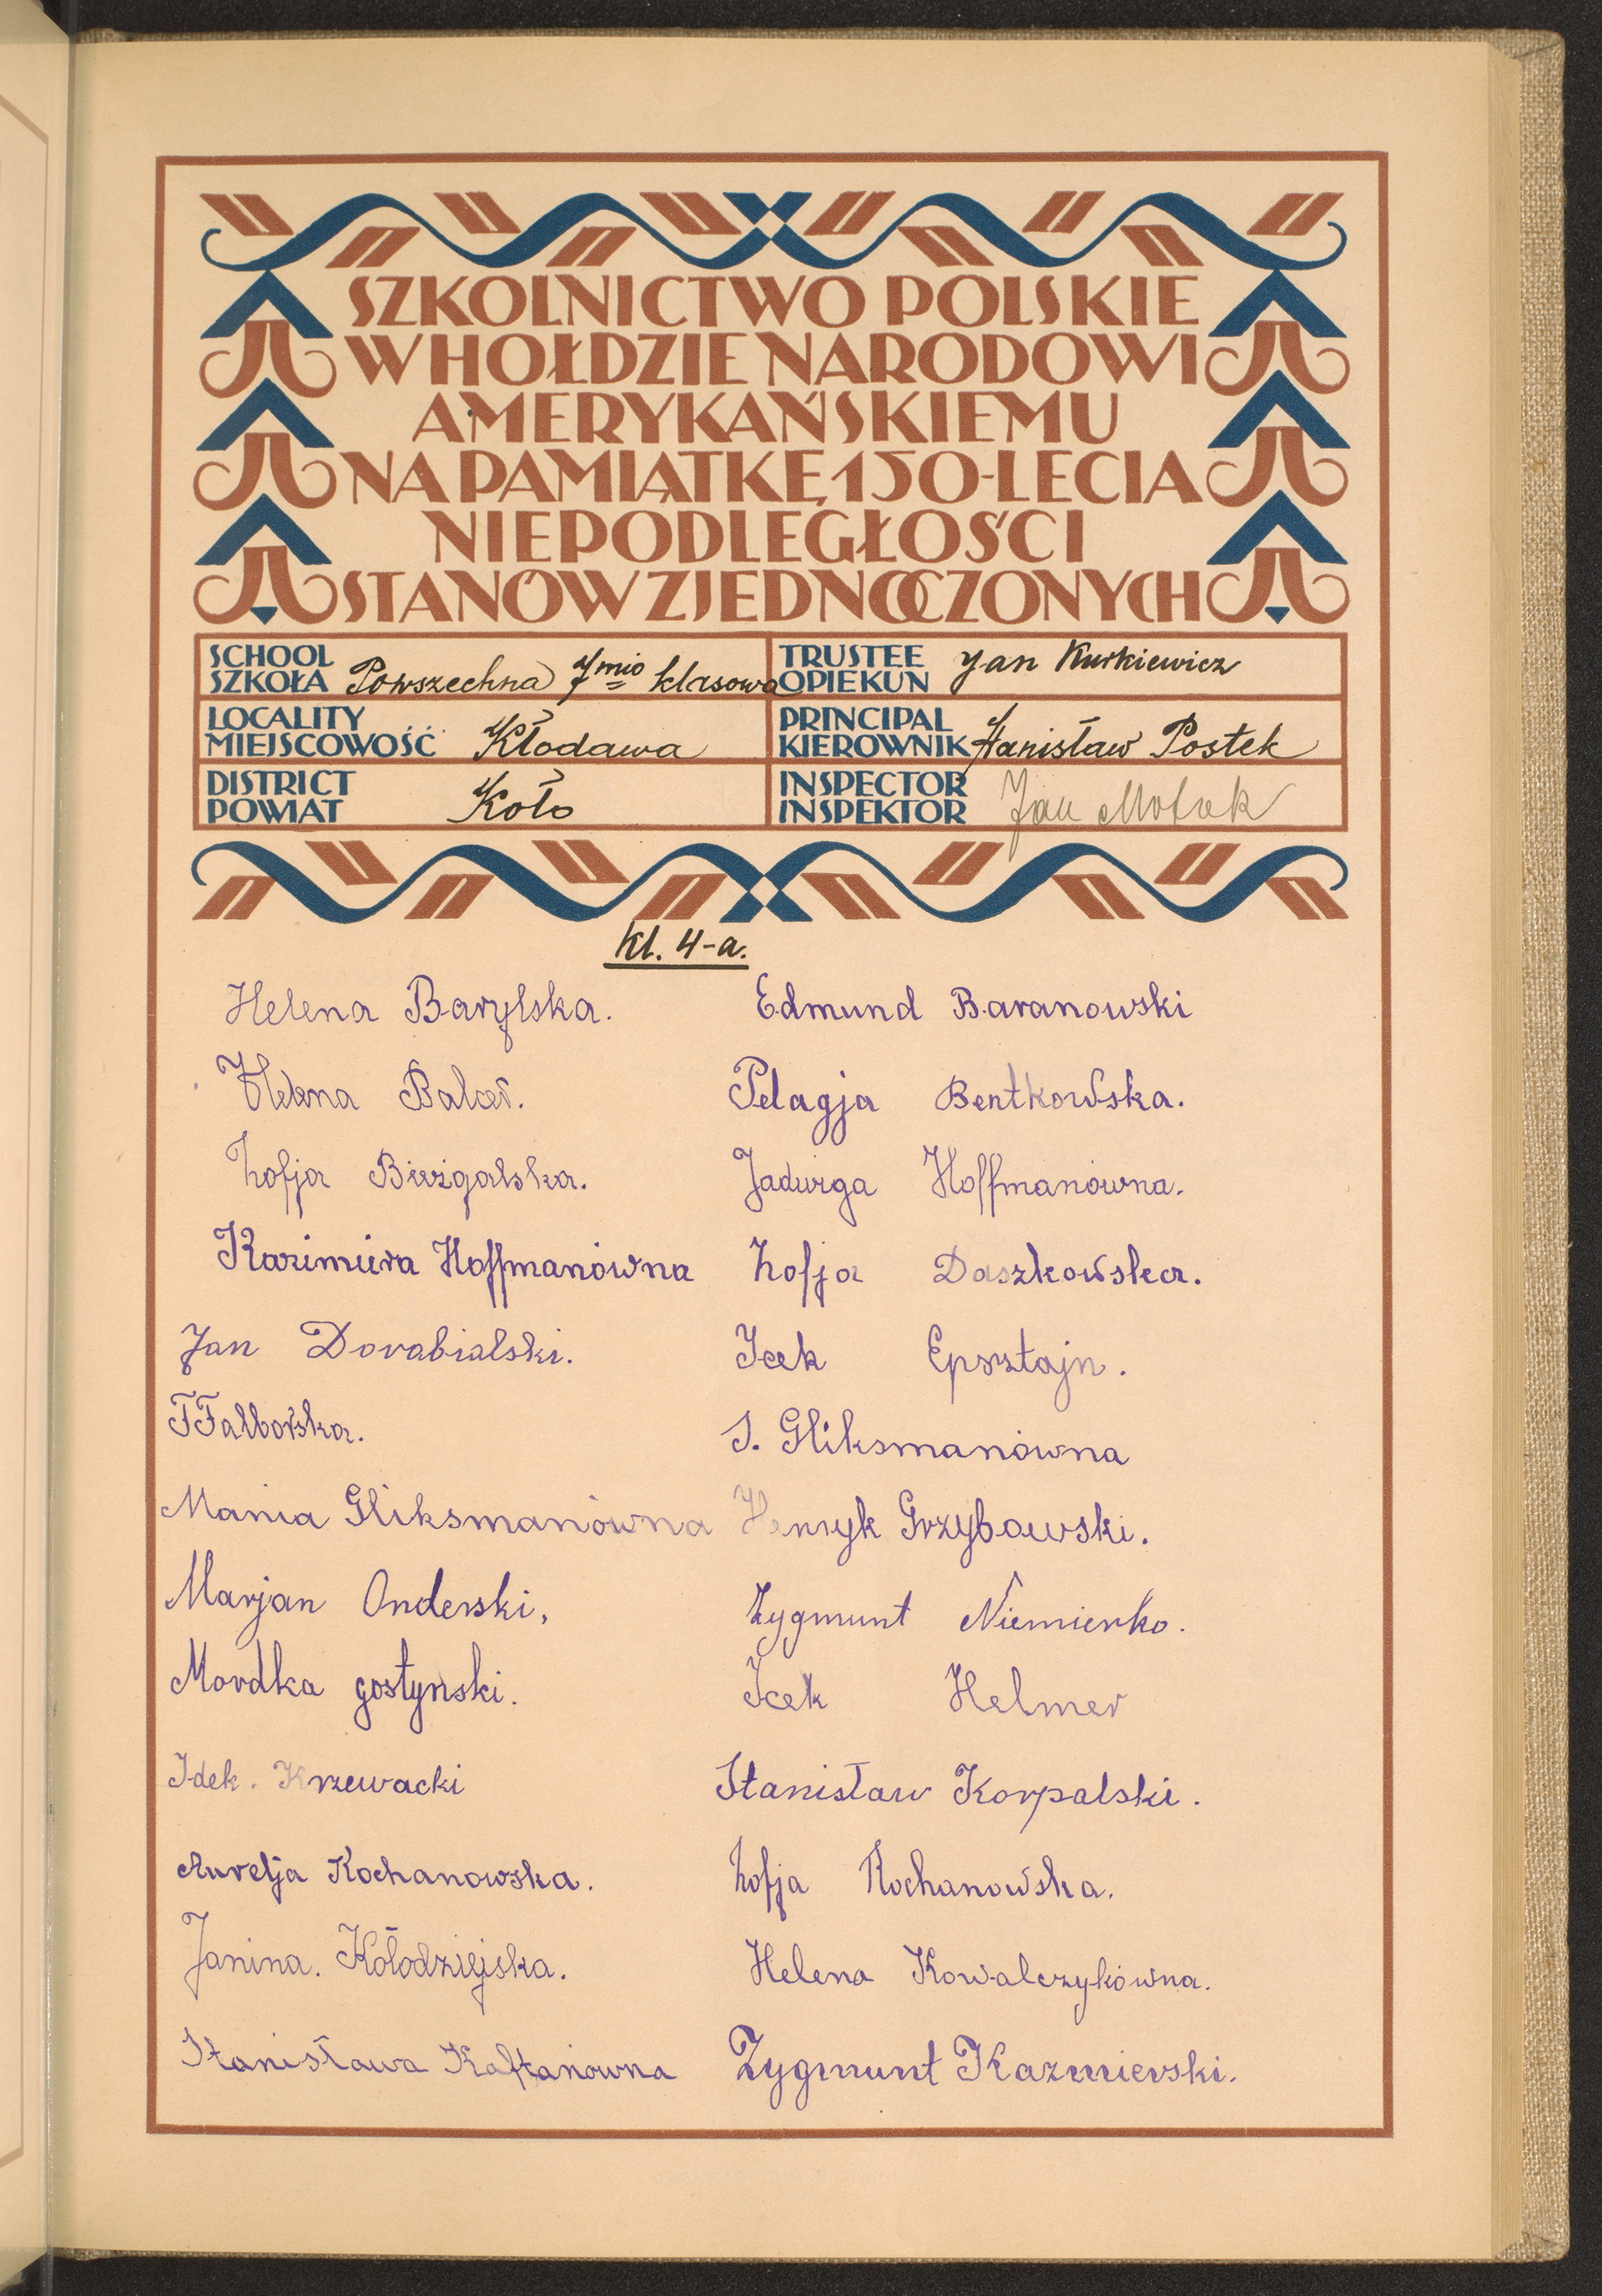 SZKOLNICTWO POLSKIE
W HOŁDZIE NARODOWI
AMERYKAŃSKIEMU
NA PAMIĄTKĘ 150-LECIA
NIEPODLEGŁOŚCI
STANÓW ZJEDNOCZONYCH
SCHOOL
SZKOŁA Powszechna 7mio klasowa
TRUSTEE
OPIEKUN Jan Kurkiewicz
LOCALITY
MIEJSCOWOŚĆ Kłodawa
PRINCIPAL
KIEROWNIK Stanisław Postek
DISTRICT
POWIAT Koło
INSPECTOR
INSPEKTOR Jan
kl. 4-a.
Helena Barylska. Edmund Baranowski
Helena Balcer. Pelagja Bentkowska.
Zofja Jadwiga Hoffmanówna.
Kazimiera Hoffmanówna Zofja Daszkowska.
Jan Dorabialski. Icek Epsztajn.
F Falborska. S. Gliksmanówna
Mania Gliksmanówna Henryk Grzybowski.
Marjan Onderski, Zygmunt Niemierko.
Mordka gostynski. Icek Helmer
Idek. Krzewacki Stanisław Korpalski.
Aurelja Kochanowska. Zofja Kochanowska.
Janina. Kołodziejska. Helena Kowalczykówna.
Stanisława Kaftanówna Zygmunt Kazmierski.